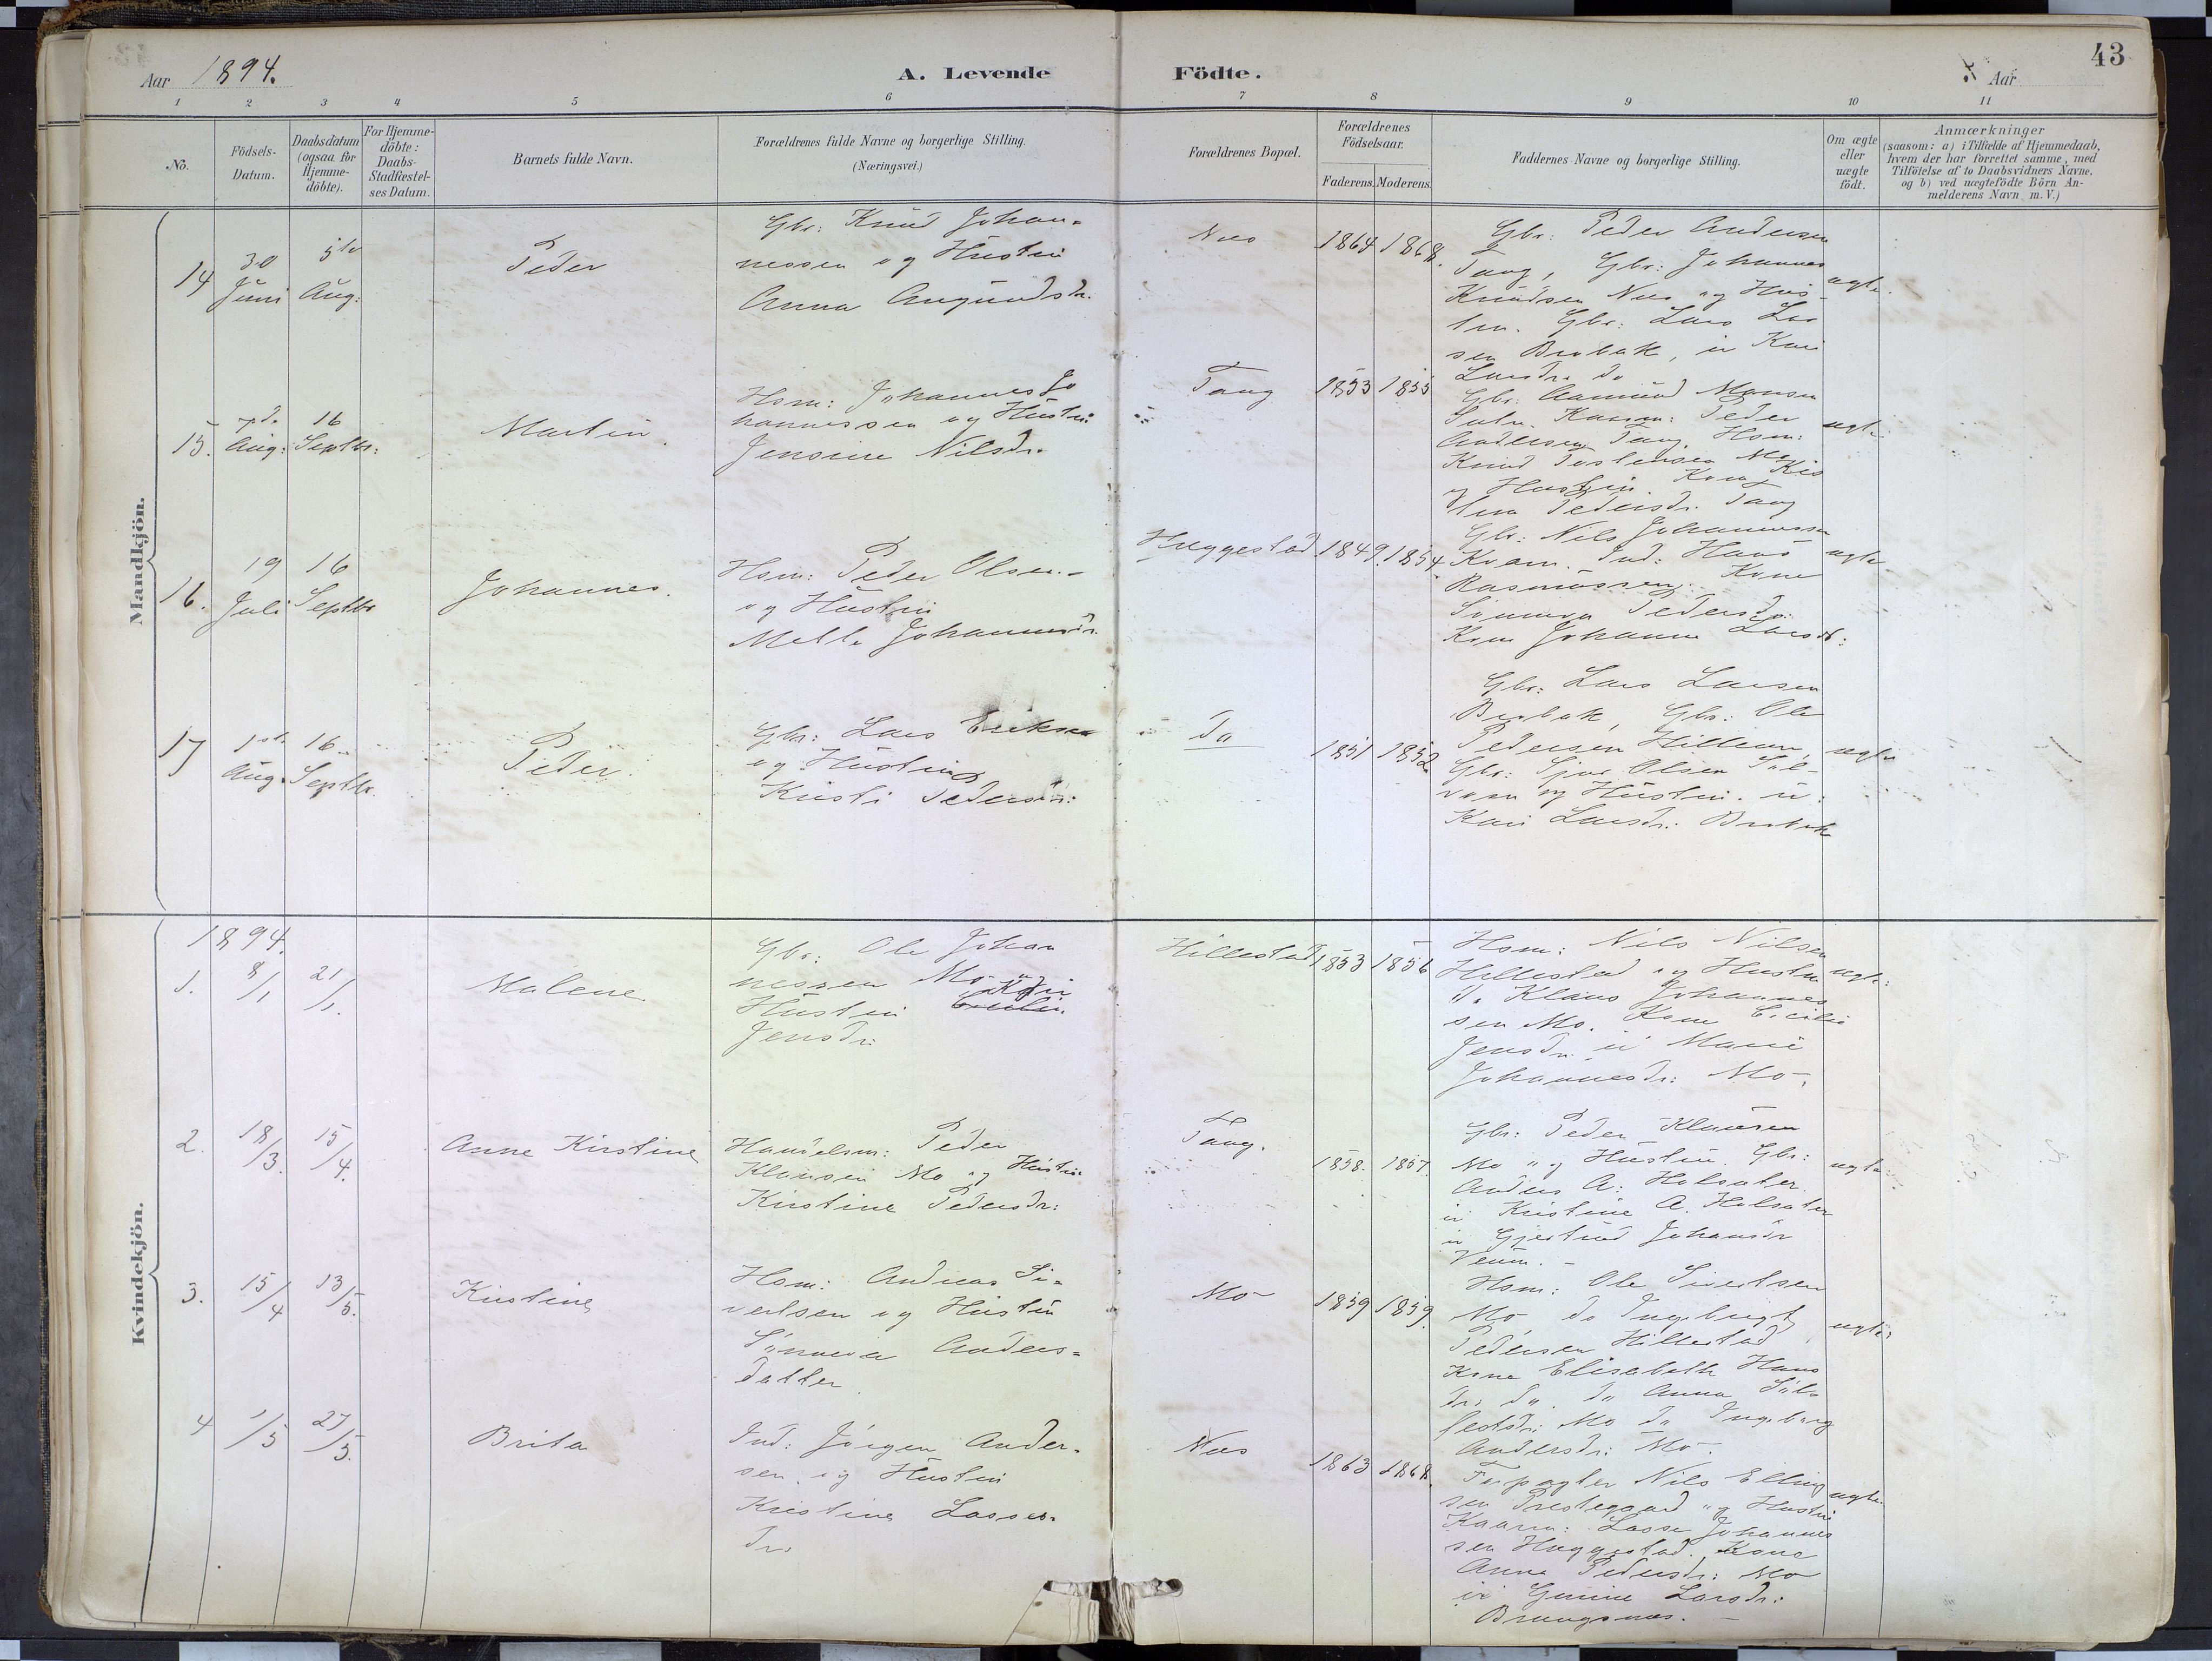 43
Aar 1894.
A. Levende Födte.
Aar
1 2 3 4 5 6 7 8 9 10 11
No.
Födsels-Datum.
Daabsdatum (ogsaa for Hjemme-döbte).
For Hjemme-döbte: Daabs-Stadfæstel-ses Datum.
Barnets fulde Navn.
Forældrenes fulde Navne og borgerlige Stilling.
(Næringsvei.)
Forældrenes Bopæl.
Forældrenes Födselsaar.
Faderens. Moderens.
Faddernes Navne og borgerlige Stilling.
Om ægte eller uægte födt.
Anmærkninger
(saasom: a) i Tilfælde af Hjemmedaab,
hvem der har forrettet samme, med
Tilföielse af to Daabsvidners Navne,
og b) ved uægtefödte Börn An-
melderens Navn m. V.)
Mandkjön.
14
30 Juni
5te Aug:
Peder
Gbr: Knud Johan-
nessen og Hustru
Anna Amundsdr.
Nes
1864 1868.
Gbr: Peder Andersen
Tang, Gbr: Johannes
Knudsen Nes og Hus-
tru. Gbr: Lars Lar
sen Brobak, u Kari
Larsdr. do
ægte.
15.
7de Aug:
16 Septbr:
Martin.
Hsm: Johannes Jo
hannessen og Hustru
Jensine Nilsdr.
Tang
1853 1855
Gbr: Aamund Monsen
Peder
Andersen Tang. Hsm:
Knud Mo
og Hustru. Kone Kis
tina Pedersdr. Tang
ægte
16.
19 Juli
16 Septbr
Johannes.
Hsm: Peder Olsen
og Hustru
Mette Johannesdr.
Huggestad
1849. 1854
Gbr: Nils Johannessen
Kvam. Ind: Hans
Rasmussen. Kone
Sünneva Pedersdr:
Kone Johanne Larsdr:
ægte
17
1ste Aug.
16 Septbr.
Peder.
Gbr: Lars Eriksen
og Hustru
Kristi Pedersdr:
Do
1851 1852
Gbr: Lars Larsen
Brobak, Gbr: Ole
Pedersen
Gbr: Sjur Olsen Söl-
vorn og Hustru. u:
Kari Larsdr: Brobak
ægte
Kvindekjön.
1894.
1.
8/1
21/1.
Malene
Gbr: Ole Johan
nessen Mo og
Hustru Kari
Jensdr:
Hillestad
1853 1856
Hsm: Nils Nilsen
Hillestad og Hustru
do Klaus Johannes
sen Mo. Kone Cicilie
Jensdr. u Marie
Johannesdr: Mo.
ægte:
2.
18/3.
15/4.
Anne Kirstine
Handelsm: Peder
Klausen Mo og Hustru
Kirstine Pedersdr:
Tang.
1858. 1857.
Gbr: Peder Klausen
Mo og Hustru. Gbr:
Anders A: Holsæter
u Kristine A. Holsæter
u Gjertrud Johansdr
Venum. -
ægte:
3.
15/4
13/5.
Kirstine
Hsm: Andreas Si-
vertsen og Hustru
Sünneva Anders-
datter.
Mo
1859 1859.
Hsm: Ole Sivertsen
Mo do Ingebrigt
Pedersen Hillestad
Kone Elisabeth Hans
dr: do. do Anna Söl-
festsdr: Mo do Ingeborg
Andersdr: Mo.
ægte:
4
1/5
27/5.
Brita
Ind: Jörgen Ander-
sen og Hustru
Kristine Lasses-
dr.
Nes
1863 1868.
Forpagter Nils Elling
sen Prestegaard og Hustru
Kaarm: Lasse Johannes
sen Huggestad. Kone
Anna Pedersdr: Mo
u Gunine Larsdr:
ægte.